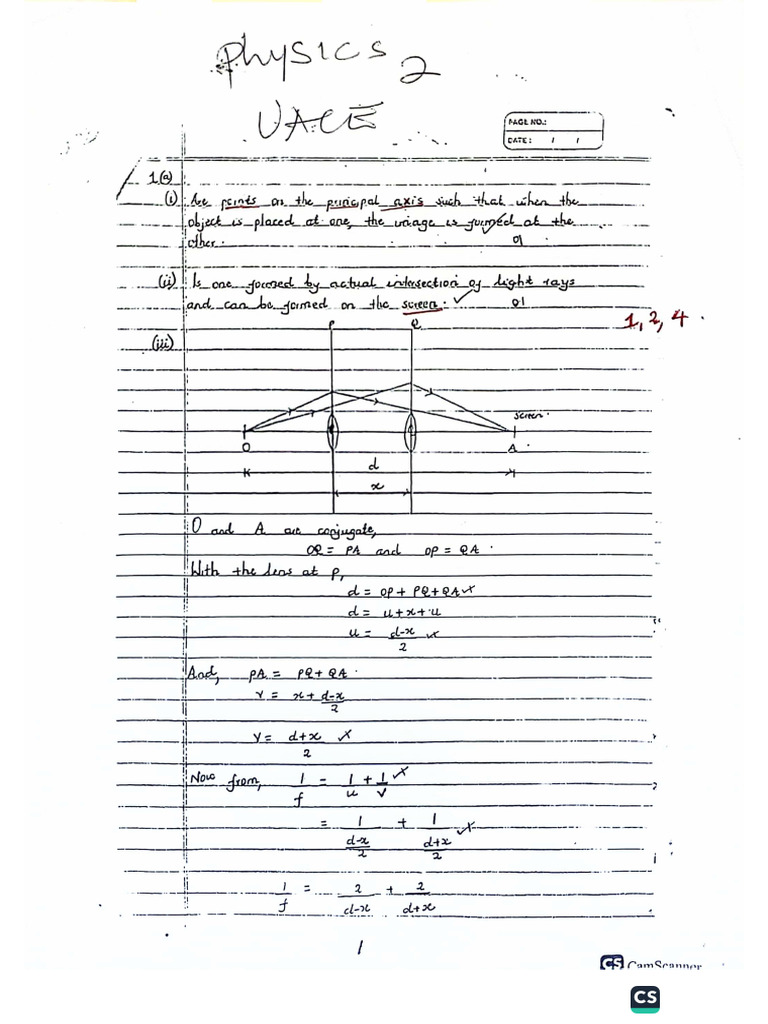 Physics 2
UACE
PAGE NO.:
DATE: / /
1(a)
(i) Are points on the principal axis such that when the
object is placed at one, the image is formed at the
other. 01
(ii) Is one formed by actual intersection of light rays
and can be formed on the screen. ✓ 01
1, 2, 4.
(iii)
P Q
screen.
O A.
d
x
O and A are conjugate,
OQ = PA and OP = QA.
With the lens at P,
d = OP + PQ + QA
d = u + x + u
u = d-x
2
And, PA = PQ + QA.
v = x + d-x
2
v = d+x
2
Now from, 1/f = 1/u + 1/v
= 1/(d-x/2) + 1/(d+x/2)
1/f = 2/(d-x) + 2/(d+x)
1
CS CamScanner
CS